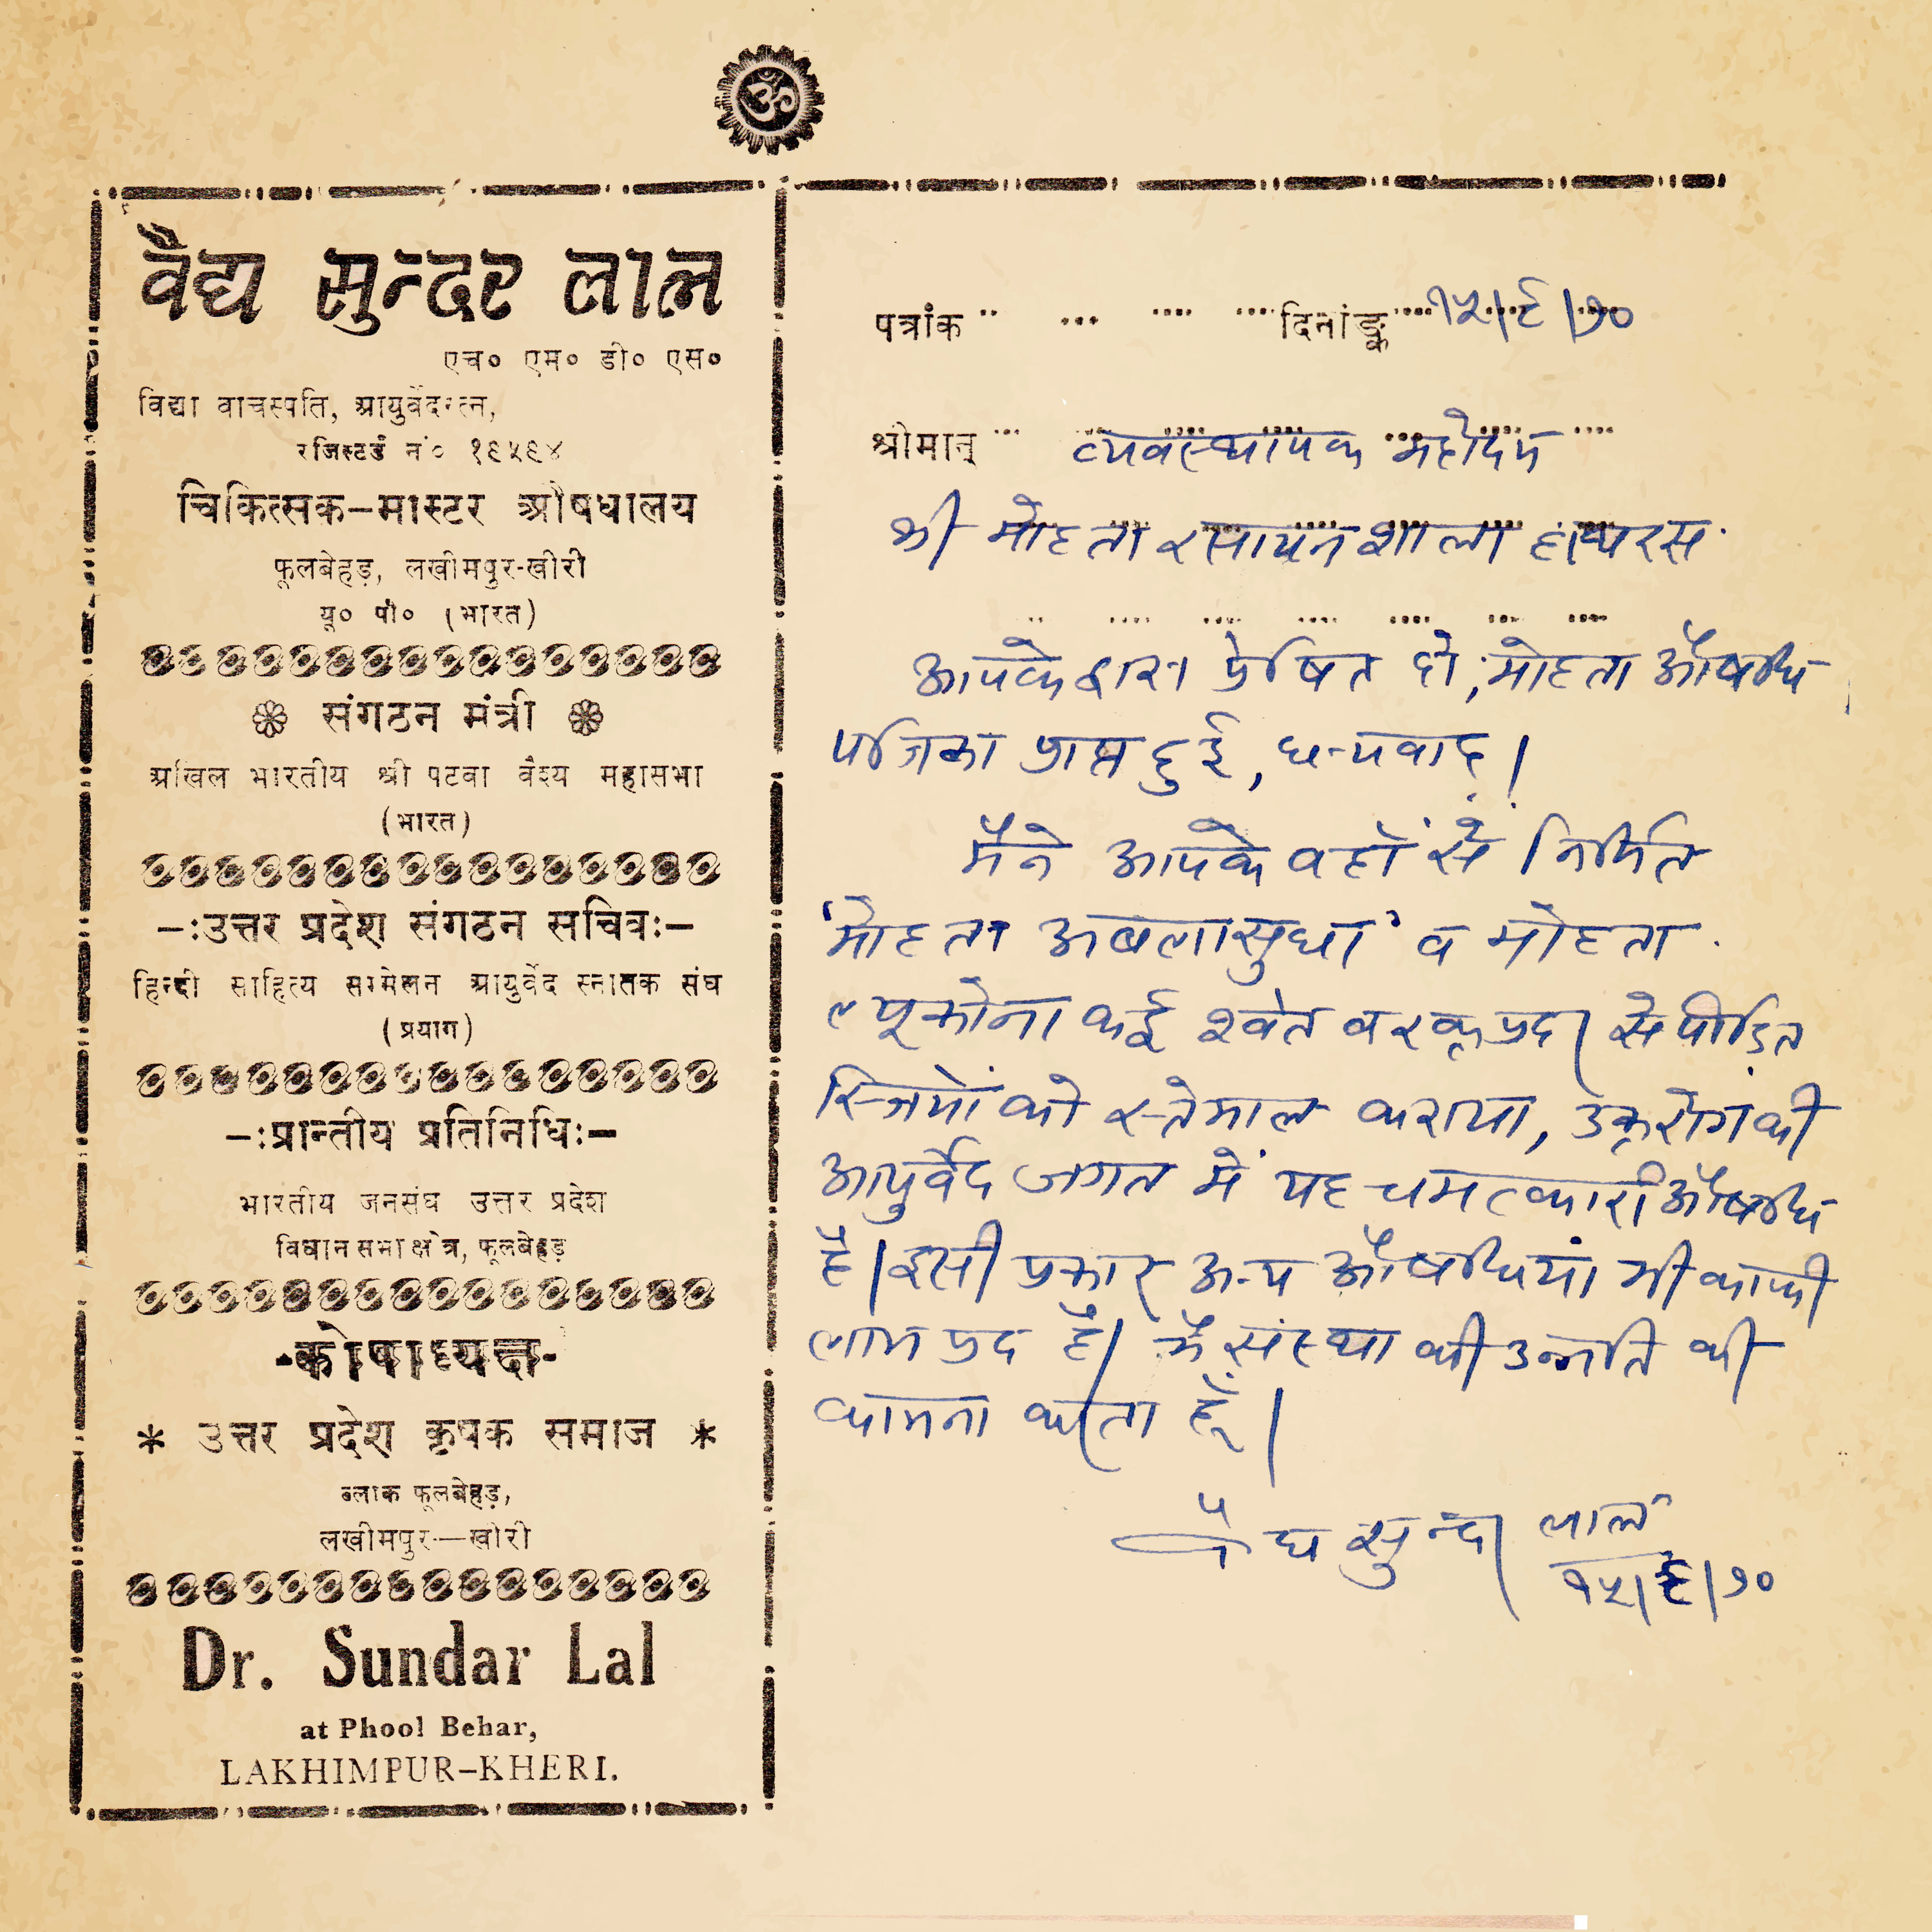 ॐ
वैद्य सुन्दर लाल
एच० एम० डी० एस०
विद्या वाचस्पति, आयुर्वेदरत्न,
रजिस्टर्ड नं० १९५९४
चिकित्सक–मास्टर औषधालय
फूलबेहड़, लखीमपुर-खीरी
यू० पी० (भारत)
संगठन मंत्री
अखिल भारतीय श्री पटवा वैश्य महासभा
(भारत)
–:उत्तर प्रदेश संगठन सचिव:–
हिन्दी साहित्य सम्मेलन आयुर्वेद स्नातक संघ
(प्रयाग)
–:प्रान्तीय प्रतिनिधि:–
भारतीय जनसंघ उत्तर प्रदेश
विधान सभा क्षेत्र, फूलबेहड़
-कोषाध्यक्ष-
* उत्तर प्रदेश कृषक समाज *
ब्लाक फूलबेहड़,
लखीमपुर—खीरी
Dr. Sundar Lal
at Phool Behar,
LAKHIMPUR–KHERI.
पत्रांक ... ... .... .... दिनांङ्क .... १५/९/७०
श्रीमान् ... व्यवस्थापक महोदय
श्री मोहता रसायनशाला हाथरस
आपके द्वारा प्रेषित दो, मोहता औषधि
पत्रिका प्राप्त हुई, धन्यवाद।
मैंने आपके वहाँ से निर्मित
'मोहता अबलासुधा' व मोहता
ल्यूकोना कई श्वेत व रक्त प्रदर से पीड़ित
स्त्रियों को इस्तेमाल कराया, उक्त रोग की
आयुर्वेद जगत में यह चमत्कारी औषधि
है। इसी प्रकार अन्य औषधियां भी काफी
लाभ प्रद है। मैं संस्था की उन्नति की
कामना करता हूँ।
वैद्य सुन्दर लाल
१५/९/७०